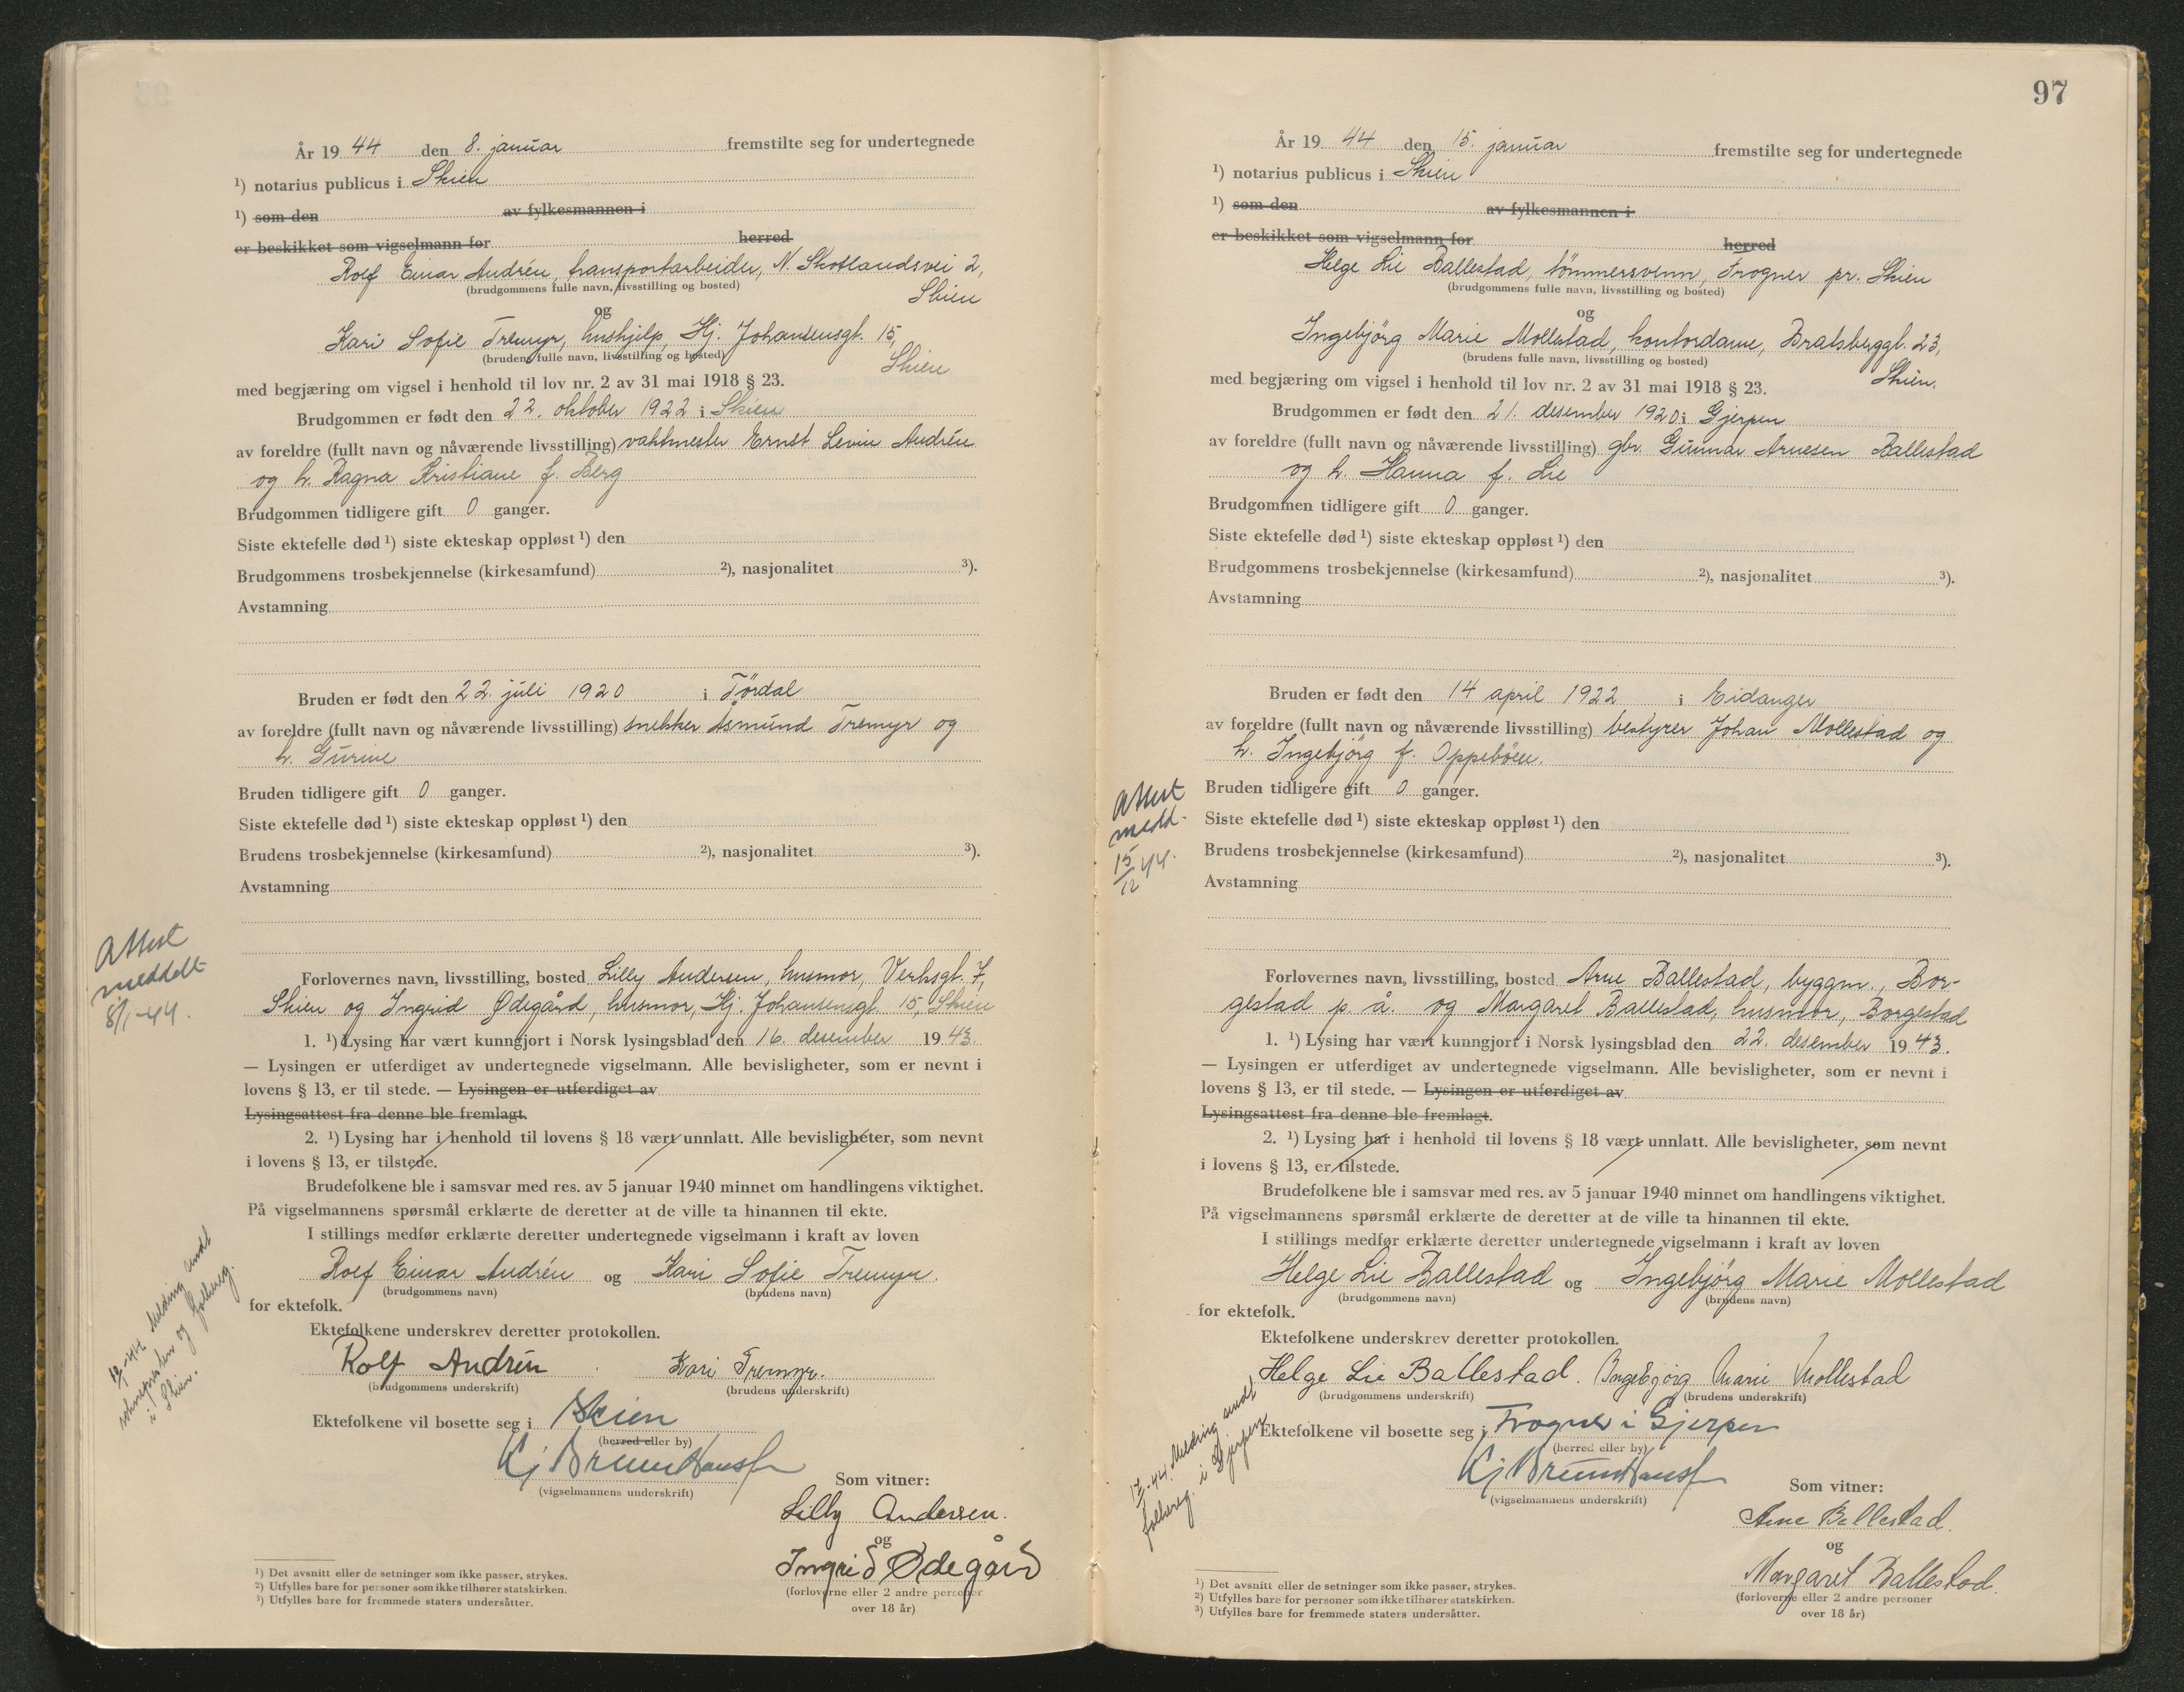 År 1944 den 8. januar fremstilte seg for undertegnede
¹) notarius publicus i Skien
¹) som den av fylkesmannen i
er beskikket som vigselmann for herred
Rolf Einar Andrén, transportarbeider, N. Skotlandsvei 2,
(brudgommens fulle navn, livsstilling og bosted)
Skien
og
Kari Sofie Tremyr, hushjelp, Hj. Johansensgt. 15,
(brudens fulle navn, livsstilling og bosted)
Skien
med begjæring om vigsel i henhold til lov nr. 2 av 31 mai 1918 § 23.
Brudgommen er født den 22. oktober 1922 i Skien
av foreldre (fullt navn og nåværende livsstilling) vaktmester Ernst Levin Andrén
og h. Ragna Kristiane f. Berg
Brudgommen tidligere gift 0 ganger.
Siste ektefelle død ¹) siste ekteskap oppløst ¹) den
Brudgommens trosbekjennelse (kirkesamfund) ²), nasjonalitet ³).
Avstamning
Bruden er født den 22. juli 1920 i Tördal
av foreldre (fullt navn og nåværende livsstilling) snekker Asmund Tremyr og
h. Gurine
Bruden tidligere gift 0 ganger.
Siste ektefelle død ¹) siste ekteskap oppløst ¹) den
Brudens trosbekjennelse (kirkesamfund) ²), nasjonalitet ³).
Avstamning
Attest
meddelt
8/1-44.
Forlovernes navn, livsstilling, bosted Lilly Andersen, husmor, Verksgt. 7,
Skien og Ingrid Ødegård, husmor, Hj. Johansensgt. 15, Skien
1. ¹) Lysing har vært kunngjort i Norsk lysingsblad den 16. desember 1943.
— Lysingen er utferdiget av undertegnede vigselmann. Alle bevisligheter, som er nevnt i
lovens § 13, er til stede. — Lysingen er utferdiget av
Lysingsattest fra denne ble fremlagt.
2. ¹) Lysing har i henhold til lovens § 18 vært unnlatt. Alle bevisligheter, som nevnt
i lovens § 13, er tilstede.
Brudefolkene ble i samsvar med res. av 5 januar 1940 minnet om handlingens viktighet.
På vigselmannens spørsmål erklærte de deretter at de ville ta hinannen til ekte.
I stillings medfør erklærte deretter undertegnede vigselmann i kraft av loven
Rolf Einar Andrén og Kari Sofie Tremyr.
(brudgommens navn) (brudens navn)
for ektefolk.
Ektefolkene underskrev deretter protokollen.
Rolf Andrén Kari Tremyr.
(brudgommens underskrift) (brudens underskrift)
-44 Melding sendt
og folkereg.
i Skien.
Ektefolkene vil bosette seg i Skien
(herred eller by)
Kj Bruun Hansen
(vigselmannens underskrift)
Som vitner:
Lilly Andersen.
og
Ingrid Ødegård
(forloverne eller 2 andre personer
over 18 år)
¹) Det avsnitt eller de setninger som ikke passer, strykes.
²) Utfylles bare for personer som ikke tilhører statskirken.
³) Utfylles bare for fremmede staters undersåtter.
97
År 1944 den 15. januar fremstilte seg for undertegnede
¹) notarius publicus i Skien
¹) som den av fylkesmannen i
er beskikket som vigselmann for herred
Helge Lie Ballestad, tömmersvenn, Frogner pr. Skien
(brudgommens fulle navn, livsstilling og bosted)
og
Ingebjörg Marie Mollestad, kontordame, Bratsberggt. 23,
(brudens fulle navn, livsstilling og bosted)
Skien.
med begjæring om vigsel i henhold til lov nr. 2 av 31 mai 1918 § 23.
Brudgommen er født den 21. desember 1920 i Gjerpen
av foreldre (fullt navn og nåværende livsstilling) gbr. Gunnar Arnesen Ballestad
og h. Hanna f. Lie
Brudgommen tidligere gift 0 ganger.
Siste ektefelle død ¹) siste ekteskap oppløst ¹) den
Brudgommens trosbekjennelse (kirkesamfund) ²), nasjonalitet ³).
Avstamning
Bruden er født den 14 april 1922 i Eidanger
av foreldre (fullt navn og nåværende livsstilling) bestyrer Johan Mollestad og
h. Ingebjörg f. Oppeböen.
Attest
medd.
15/12 44.
Bruden tidligere gift 0 ganger.
Siste ektefelle død ¹) siste ekteskap oppløst ¹) den
Brudens trosbekjennelse (kirkesamfund) ²), nasjonalitet ³).
Avstamning
Forlovernes navn, livsstilling, bosted Arne Ballestad, byggm., Bor-
gestad p. å. og Margaret Ballestad, husmor, Borgestad
1. ¹) Lysing har vært kunngjort i Norsk lysingsblad den 22. desember 1943.
— Lysingen er utferdiget av undertegnede vigselmann. Alle bevisligheter, som er nevnt i
lovens § 13, er til stede. — Lysingen er utferdiget av
Lysingsattest fra denne ble fremlagt.
2. ¹) Lysing har i henhold til lovens § 18 vært unnlatt. Alle bevisligheter, som nevnt
i lovens § 13, er tilstede.
Brudefolkene ble i samsvar med res. av 5 januar 1940 minnet om handlingens viktighet.
På vigselmannens spørsmål erklærte de deretter at de ville ta hinannen til ekte.
I stillings medfør erklærte deretter undertegnede vigselmann i kraft av loven
Helge Lie Ballestad og Ingebjörg Marie Mollestad
(brudgommens navn) (brudens navn)
for ektefolk.
Ektefolkene underskrev deretter protokollen.
Helge Lie Ballestad. Ingebjörg Marie Mollestad
(brudgommens underskrift) (brudens underskrift)
-44. Melding sendt
folkereg. i Gjerpen
Ektefolkene vil bosette seg i Frogner i Gjerpen
(herred eller by)
Kj Bruun Hansen
(vigselmannens underskrift)
Som vitner:
Arne Ballestad.
og
Margaret Ballestad.
(forloverne eller 2 andre personer
over 18 år)
¹) Det avsnitt eller de setninger som ikke passer, strykes.
²) Utfylles bare for personer som ikke tilhører statskirken.
³) Utfylles bare for fremmede staters undersåtter.